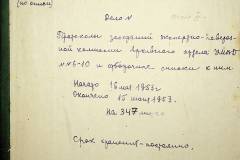 (по описи)
Дело №
Протоколы заседаний экспертно-поверочной
комиссии Архивного отдела
№№ 6-10 и отборочные списки к ним
Начато 16 мая 1953 г.
Окончено 15 июня 1953.
На 347
Срок хранения - постоянно.